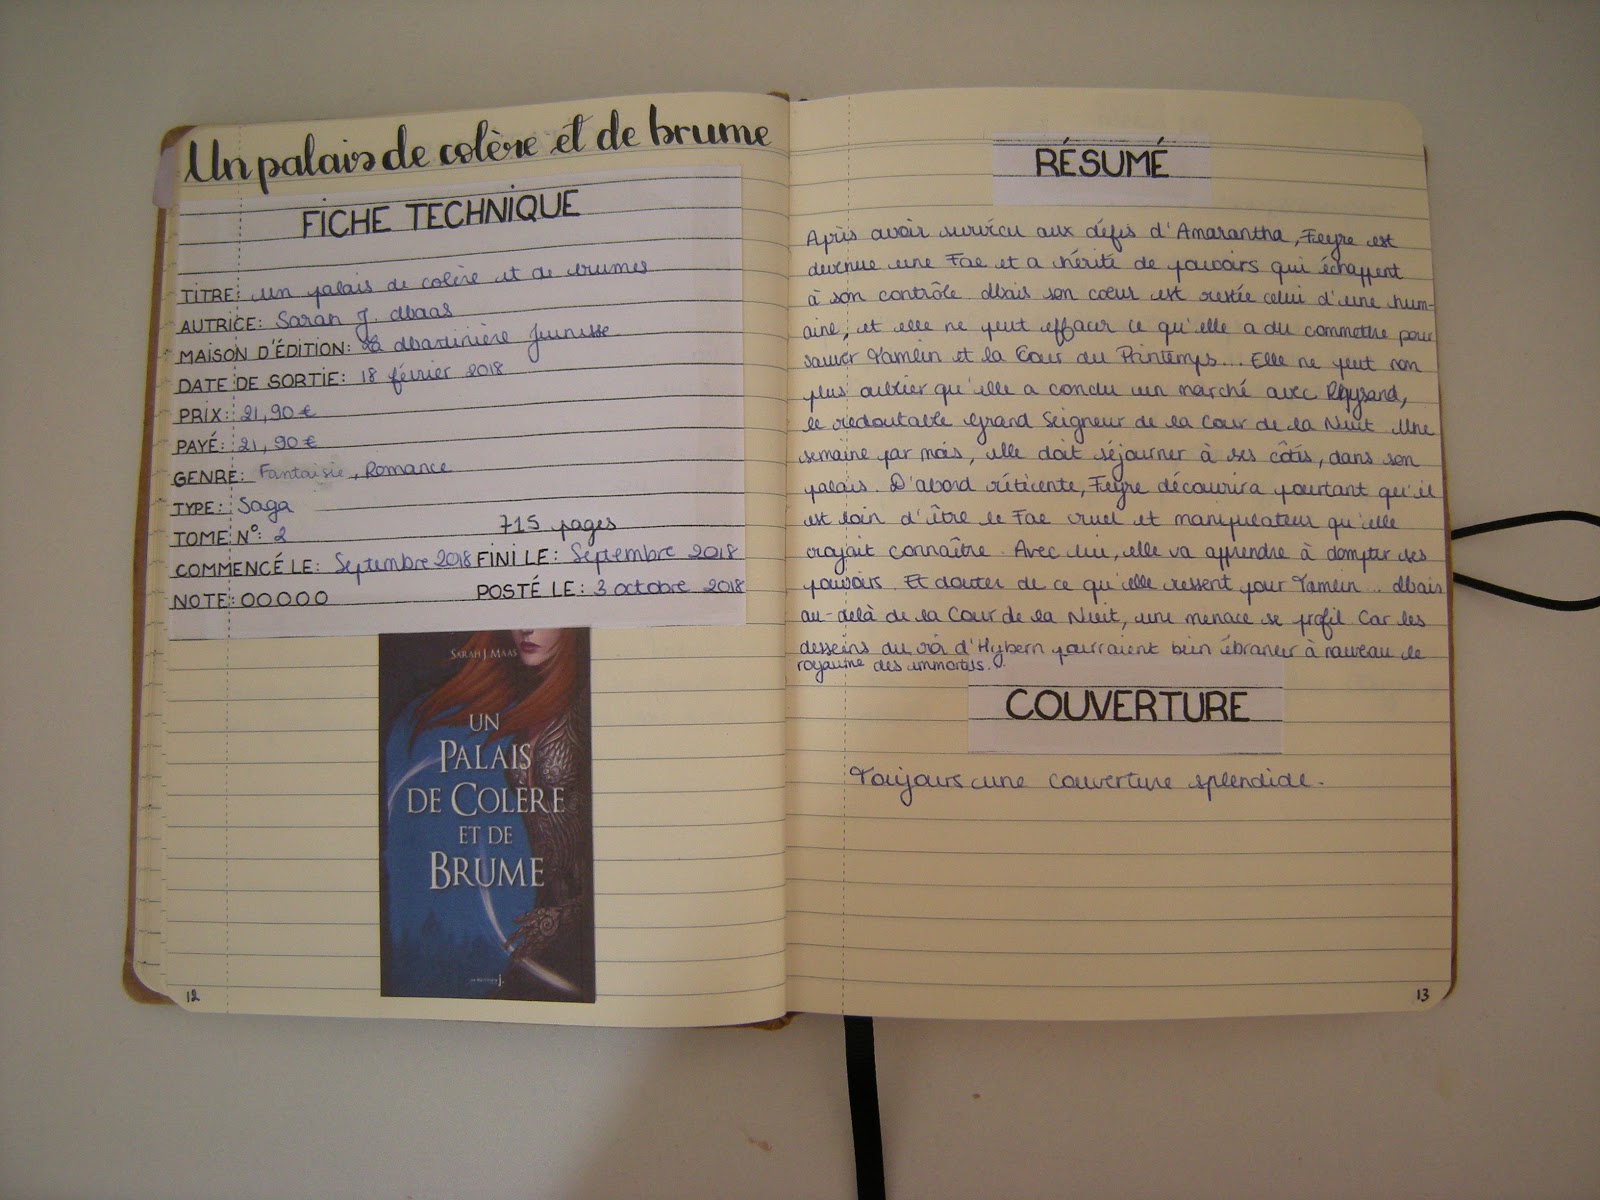 Un palais de colère et de brume
FICHE TECHNIQUE
TITRE: Un palais de colère et de brumes
AUTRICE: Sarah J. Maas
MAISON D'ÉDITION: La Martinière Jeunesse
DATE DE SORTIE: 18 février 2018
PRIX: 21,90 €
PAYÉ: 21,90 €
GENRE: Fantaisie, Romance
TYPE: Saga
TOME N°: 2 715 pages
COMMENCÉ LE: Septembre 2018 FINI LE: Septembre 2018
NOTE: OOOOO POSTÉ LE: 3 octobre 2018
SARAH J. MAAS
UN
PALAIS
DE COLÈRE
ET DE
BRUME
12
RÉSUMÉ
Après avoir survécu aux défis d'Amarantha, Feyre est
devenue une Fae et a hérité de pouvoirs qui échappent
à son contrôle. Mais son cœur est restée celui d'une hum-
aine, et elle ne peut effacer ce qu'elle a du commettre pour
sauver Tamlin et la Cour du Printemps... Elle ne peut non
plus oublier qu'elle a conclu un marché avec Rhysand,
le redoutable Grand Seigneur de la Cour de la Nuit. Une
semaine par mois, elle doit séjourner à ses côtés, dans son
palais. D'abord réticente, Feyre découvrira pourtant qu'il
est loin d'être le Fae cruel et manipulateur qu'elle
croyait connaître. Avec lui, elle va apprendre à dompter ses
pouvoirs. Et douter de ce qu'elle ressent pour Tamlin... Mais
au-delà de la Cour de la Nuit, une menace se profil. Car les
desseins du roi d'Hybern pourraient bien ébranler à nouveau le
royaume des immortels.
COUVERTURE
Toujours une couverture splendide.
13